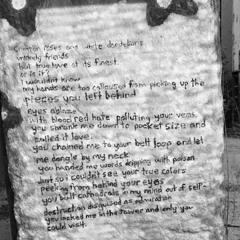 Crimson roses and white dandelions
unlikely friends
but true love at its finest.
or is it?
I wouldn't know
my hands are too calloused from picking up the
pieces you left behind
eyes ablaze
with blood red hate polluting your veins
you shrank me down to pocket size and
called it love.
you chained me to your belt loop and let
me dangle by my neck
you handed me words dripping with poison
but so I couldn't see your true colors
peeking from behind your eyes
you built cathedrals in my mind out of self-
destruction disguised as admiration
you locked me in the tower and only you
could visit.